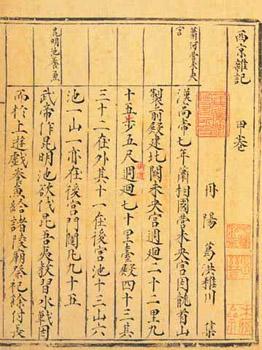 西京雜記 甲卷
丹陽 葛洪稚川 集
蕭何營未央
宮
漢高帝七年蕭相國營未央宮因龍首山
製前殿建北闕未央宮週迴二十二里九
十五步五尺街道週迴七十里臺殿四十三其
三十二在外其十一在後宮池十三山六
池一山一亦在後宮門闥凡九十五
昆明池養魚
武帝作昆明池欲伐昆吾夷教習水戰因
而於上遊戲養魚給諸陵廟祭祀餘付長